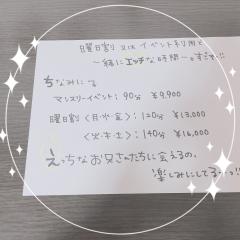 曜日割 又は イベント利用で
〜緒にエッチな時間〜。すごそ!!
ちなみに、
マンスリーイベント：90分 ¥9,900
曜日割〈月・水・金〉：120分 ¥13,000
〈火・木・土〉：140分 ¥16,000
えっちなお兄さんたちに会えるの、
楽しみにしてる